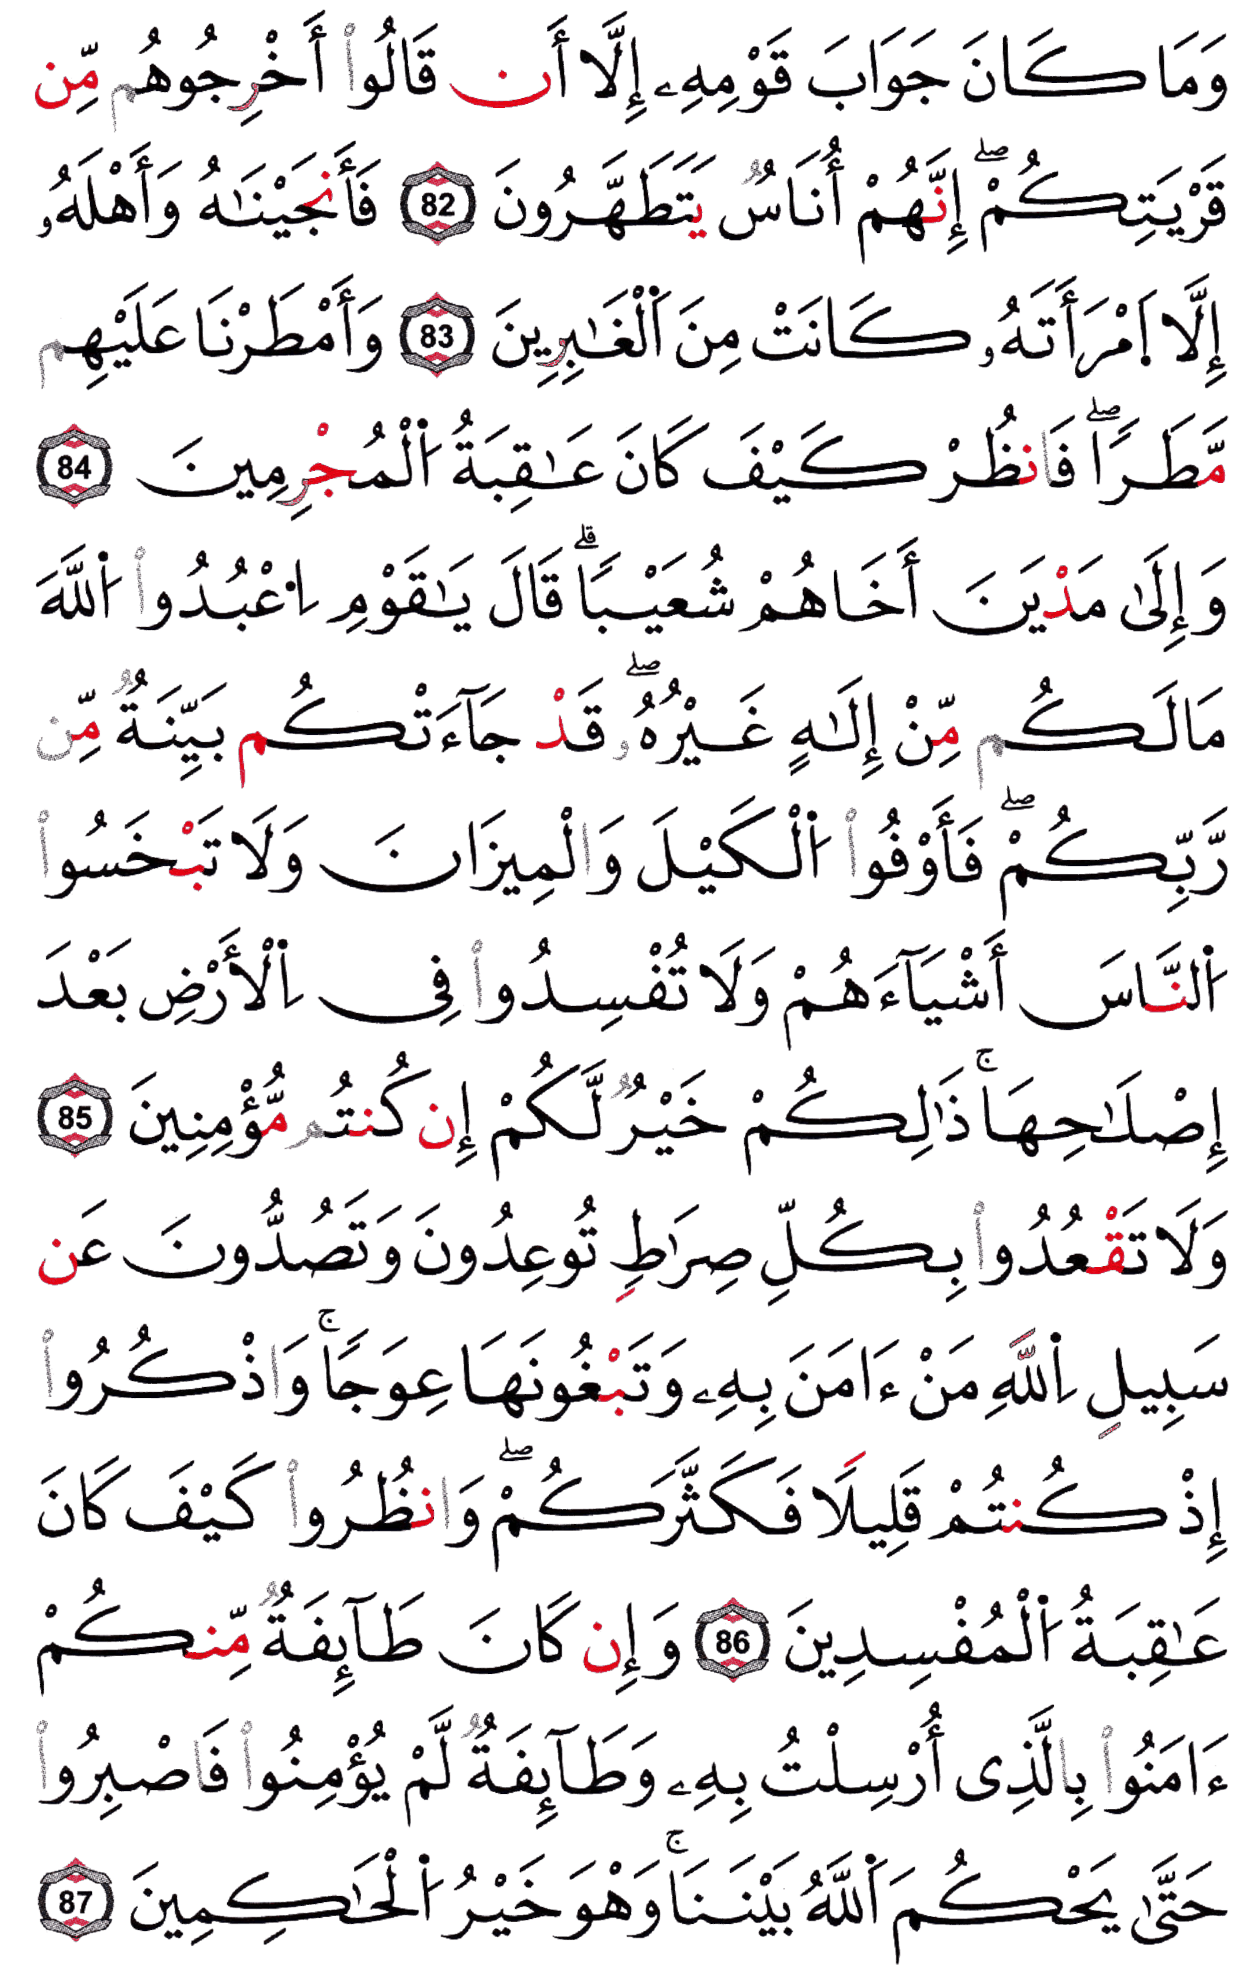 وَمَا كَانَ جَوَابَ قَوْمِهِۦ إِلَّا أَن قَالُوا۟ أَخْرِجُوهُم مِّن
قَرْيَتِكُمْ ۖ إِنَّهُمْ أُنَاسٌ يَتَطَهَّرُونَ 82 فَأَنجَيْنَٰهُ وَأَهْلَهُۥ
إِلَّا اَمْرَأَتَهُۥ كَانَتْ مِنَ اَ۬لْغَٰبِرِينَ 83 وَأَمْطَرْنَا عَلَيْهِم
مَّطَرًا ۖ فَانظُرْ كَيْفَ كَانَ عَٰقِبَةُ اُ۬لْمُجْرِمِينَ 84
وَإِلَىٰ مَدْيَنَ أَخَاهُمْ شُعَيْبًا ۗ قَالَ يَٰقَوْمِ اِ۟عْبُدُوا۟ اُ۬للَّهَ
مَا لَكُم مِّنْ إِلَٰهٍ غَيْرُهُۥ ۖ قَدْ جَآءَتْكُم بَيِّنَةٌ مِّن
رَّبِّكُمْ ۖ فَأَوْفُوا۟ اُ۬لْكَيْلَ وَالْمِيزَانَ وَلَا تَبْخَسُوا۟
اُ۬لنَّاسَ أَشْيَآءَهُمْ وَلَا تُفْسِدُوا۟ فِى اِ۬لْأَرْضِ بَعْدَ
إِصْلَٰحِهَا ۚ ذَٰلِكُمْ خَيْرٌ لَّكُمْ إِن كُنتُم مُّؤْمِنِينَ 85
وَلَا تَقْعُدُوا۟ بِكُلِّ صِرَٰطٍ تُوعِدُونَ وَتَصُدُّونَ عَن
سَبِيلِ اِ۬للَّهِ مَنْ ءَامَنَ بِهِۦ وَتَبْغُونَهَا عِوَجًا ۚ وَاذْكُرُوا۟
إِذْ كُنتُمْ قَلِيلًا فَكَثَّرَكُمْ ۖ وَانظُرُوا۟ كَيْفَ كَانَ
عَٰقِبَةُ اُ۬لْمُفْسِدِينَ 86 وَإِن كَانَ طَآئِفَةٌ مِّنكُمْ
ءَامَنُوا۟ بِالَّذِى أُرْسِلْتُ بِهِۦ وَطَآئِفَةٌ لَّمْ يُؤْمِنُوا۟ فَاصْبِرُوا۟
حَتَّىٰ يَحْكُمَ اَ۬للَّهُ بَيْنَنَا ۚ وَهْوَ خَيْرُ اُ۬لْحَٰكِمِينَ 87